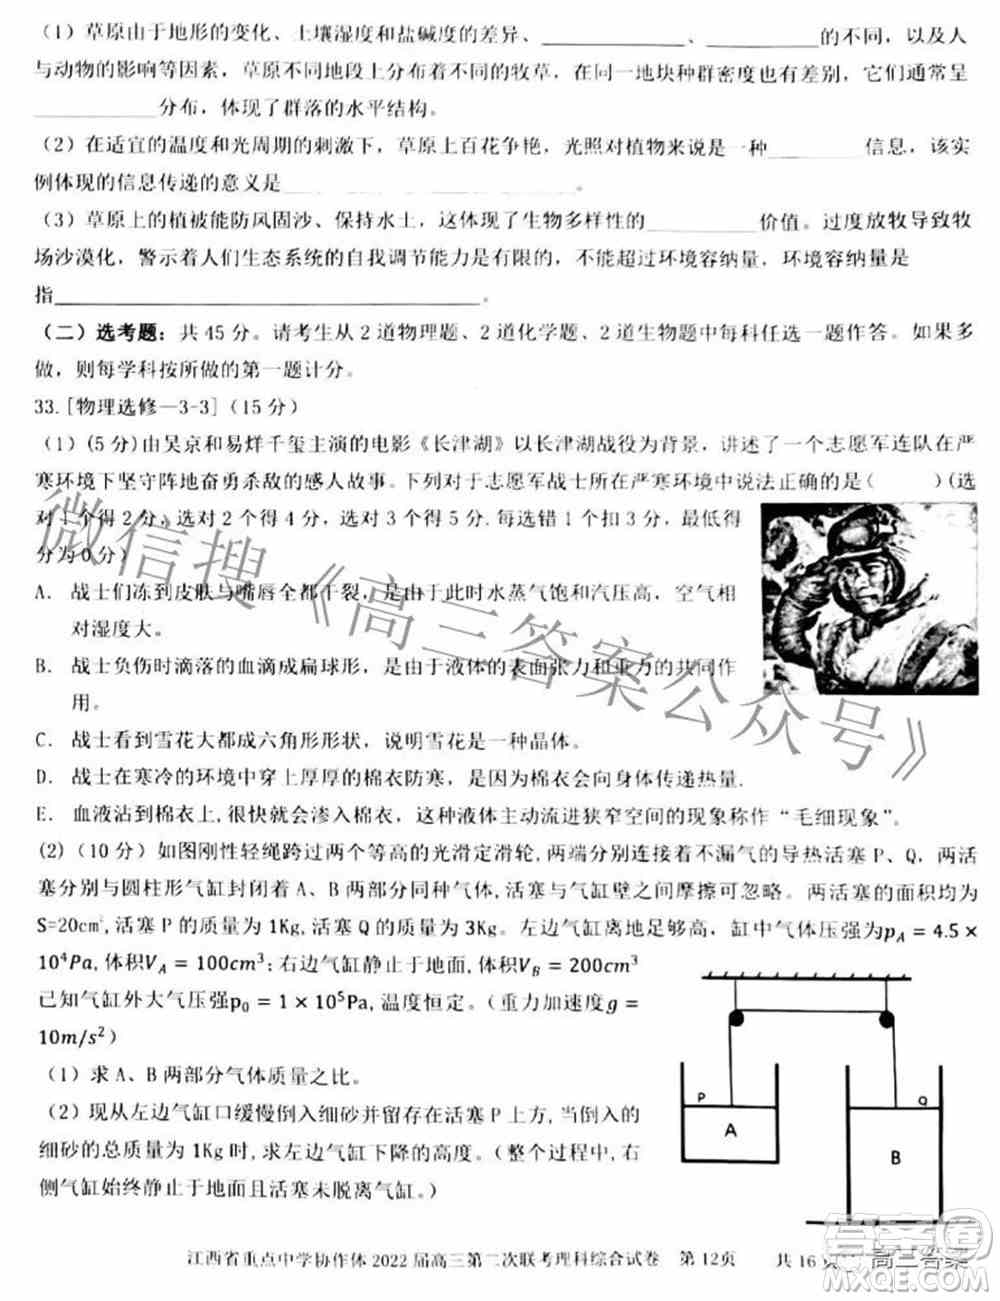 （1）草原由于地形的变化、土壤湿度和盐碱度的差异、____________、____________的不同，以及人
与动物的影响等因素，草原不同地段上分布着不同的牧草，在同一地块种群密度也有差别，它们通常呈
____________分布，体现了群落的水平结构。
（2）在适宜的温度和光周期的刺激下，草原上百花争艳，光照对植物来说是一种__________信息，该实
例体现的信息传递的意义是____________________
（3）草原上的植被能防风固沙、保持水土，这体现了生物多样性的__________价值。过度放牧导致牧
场沙漠化，警示着人们生态系统的自我调节能力是有限的，不能超过环境容纳量，环境容纳量是
指________________________________________。
（二）选考题：共 45 分。请考生从 2 道物理题、2 道化学题、2 道生物题中每科任选一题作答。如果多
做，则每学科按所做的第一题计分。
33.[物理选修—3-3]（15 分）
（1）(5 分)由吴京和易烊千玺主演的电影《长津湖》以长津湖战役为背景，讲述了一个志愿军连队在严
寒环境下坚守阵地奋勇杀敌的感人故事。下列对于志愿军战士所在严寒环境中说法正确的是（　　）(选
对 1 个得 2 分，选对 2 个得 4 分，选对 3 个得 5 分.每选错 1 个扣 3 分，最低得
分为 0 分)
A. 战士们冻到皮肤与嘴唇都干裂，是由于此时水蒸气饱和汽压高，空气相
对湿度大。
B. 战士负伤时滴落的血滴成扁球形，是由于液体的表面张力和重力的共同作
用。
C. 战士看到雪花大都成六角形形状，说明雪花是一种晶体。
D. 战士在寒冷的环境中穿上厚厚的棉衣防寒，是因为棉衣会向身体传递热量.
E. 血液沾到棉衣上，很快就会浸入棉衣，这种液体主动流进狭窄空间的现象称作“毛细现象”。
(2)（10 分）如图刚性轻绳跨过两个等高的光滑定滑轮, 两端分别连接不漏气的导热活塞 P、Q，两活
塞分别与圆柱形气缸封闭着 A、B两种气体,活塞与气缸壁之间摩擦可忽略。两活塞的面积均为
S=20cm²，活塞 P 的质量为 1Kg，活塞 Q 的质量为 3Kg。左边气缸离地足够高，缸中气体压强为p_A = 4.5 ×
10⁴Pa,体积V_A = 100cm³;右边气缸静止于地面，气体体积V_B = 200cm³
已知气缸外大气压强p₀ = 1 × 10⁵Pa,温度恒定。（重力加速度g =
10m/s²）
（1）求 A、B 两部分气体质量之比。
（2）现从左边气缸口缓慢倒入细砂并留存在活塞 P 上方,当倒入的
细砂的总质量为 1Kg 时，求左边气缸活塞下降的高度。（整个过程右
侧气缸始终静止于地面且活塞未脱离气缸。）
P
Q
A
B
江西省重点中学协作体 2022 届高三第二次联考理科综合试卷　第 12页　共 16 页
微信搜《高三答案公众号》
答案圈
高三答案
MXQE.COM